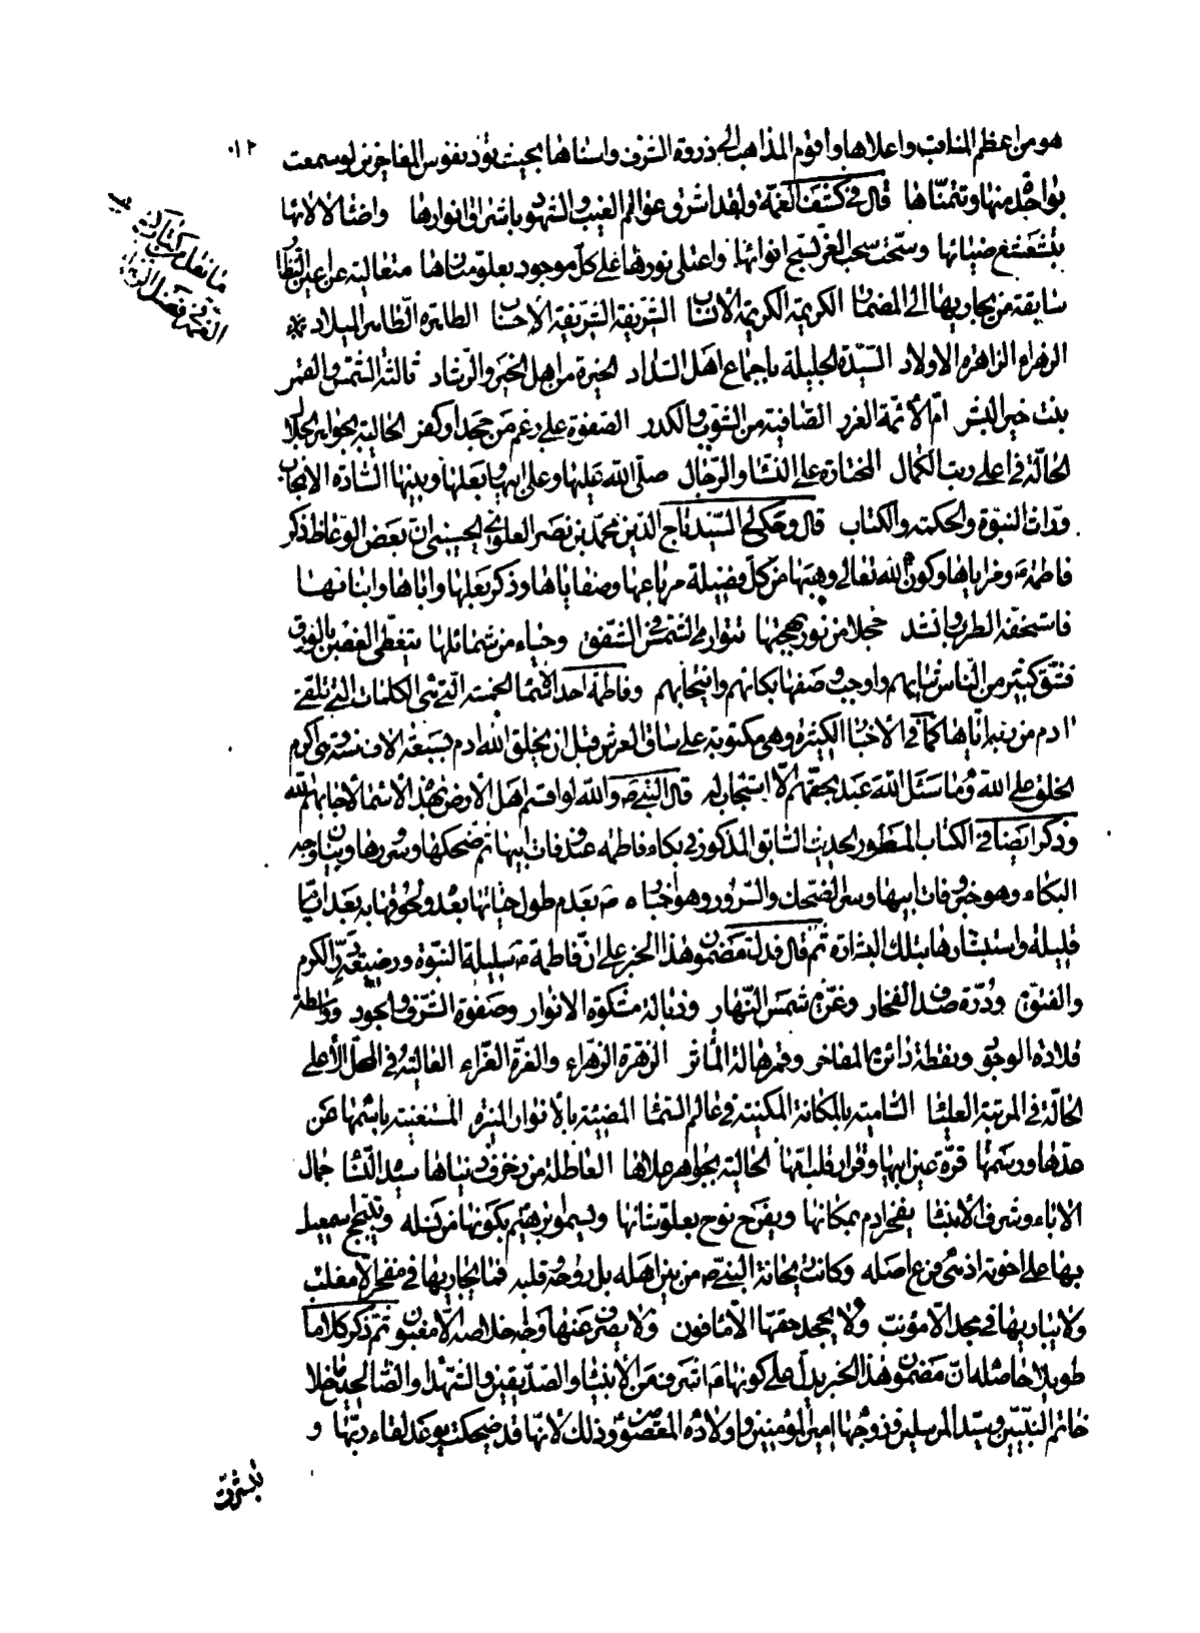 هو من اعظم المناقب واعلاها واقوم المذاهب الى ذروة الشرف واسناها بحيث تود نفوس المفاخرين لو سمعت
بواحد منها وتتمنّاها قال فى كشف الغمّة ولقد اشرق عوالم الغيب والشهود باشراق انوارها واضاء لألائها
بتشعشع ضيائها وسحّت سحب العزّ بسحّ انوائها واعتلى نورها على كلّ موجود بعلوّ منارها متعالية عن اعين النظّار
سابقة من يجاريها الى المضمار الكريمة الكريمة الأنساب الشريفة الشريفة الأحساب الطاهرة الطّاهر الميلاد
الزهراء الزاهرة الاولاد السيّدة الجليلة باجماع اهل السّداد الخيرة من اهل الخير والرشاد ثالثة الشّمس والقمر
بنت خير البشر امّ الأئمة الغرر الصّافية من الشوب والكدر الصّفوة على رغم من جحد او كفر الحالية بجواهر الجلال
الحالّة فى اعلى رتب الكمال المختارة على النّساء والرّجال صلّى الله عليها وعلى ابيها وبعلها وبنيها السّادة الانجاب
ورّاث النبوّة والحكمة والكتاب قال وحكى لى السّيّد تاج الدّين محمّد بن نصر العلوى الحسينى انّ بعض الوعّاظ ذكر
فاطمة ع ومزاياها وكون الله تعالى وهبها من كلّ فضيلة مرباعها وصفاياها وذكر بعلها واباها وابناءها
فاستخفّه الطرب وانشد خجلا من نور بهجتها تتوارى الشّمس فى الشّفق وحياء من شمائلها يتغطّى الغصن بالورق
فشقّ كثير من النّاس ثيابهم واوجب وصفها بكائهم وانتحابهم وفاطمة احد الأسماء الخمسة الّتى هى الكلمات الّتى تلقّى
ادم من ربه ايّاها كما فى الأخبار الكثيرة وهى مكتوبة على ساق العرش قبل ان يخلق الله ادم بسبعة الاف سنة وهى اكرم
الخلق على الله وما سئل الله عبد بحقّهم الّا استجاب له قال النبى ص والله لو اقسم اهل الأرض بهذه الاسماء لأجابهم الله
وذكر ايضا فى الكتاب المسطور الحديث السّابق المذكور فى بكاء فاطمة عند وفات ابيها ثم ضحكها وسرورها وبيان وجه
البكاء وهو خبر وفات ابيها وسر الضّحك والسّرور وهو اخباره ص بعدم طول حياتها بعده ولحوقها به بعد ايّام
قليلة واستبشارها بتلك البشارة ثم قال فدلّ مضمون هذا الخبر على انّ فاطمة ع سليلة النبوّة ورضيعة درّ الكرم
والفتوّة ودُرّة صدف الفخار وغرّة شمس النّهار وذبالة مشكوة الانوار وصفوة الشّرف والجود وواسطة
قلادة الوجود ونقطة دائرة المفاخر وقمر هالة المأثر الزهرة الزهراء والغرّة الغرّاء العالية فى المحلّ الأعلى
الحالّة فى المرتبة العليا السّامية بالمكانة المكينة فى عالم السّماء المضيئة بالأنوار المنيرة المستغنية باسمها عن
حدّها ورسمها قرّة عين ابيها وقرار قلب امّها الحالية بجواهر علاها العاطلة من زخرف دنياها سيّدة النّساء جمال
الاباء وشرف الأبناء يفخر ادم بمكانها ويفرح نوح بعلوّ شانها ويسمو ابرهيم بكونها من نسله ويتبجّح اسمعيل
بها على اخوته اذ هى فرع اصله وكانت ريحانة النبى ص من بين اهله بل روحه وقلبه فما يجاريها فى مفخر الّا مغلّب
ولا يباريها فى مجد الّا مؤنّب ولا يجحد حقّها الّا مافون ولا يصرف عنها وجه اخلاصه الّا مغبون ثم ذكر كلاما
طويلا حاصله انّ مضمون هذا الخبر يدلّ على كونها ع اشرف من الأنبياء والصدّيقين والشّهداء والصّالحين خلا
خاتم النبيّين وسيّد المرسلين وزوجها امير المؤمنين واولاده المعصومين وذلك لأنّها قد ضحكت بوعد لقاء ربّها و
تبشّرت